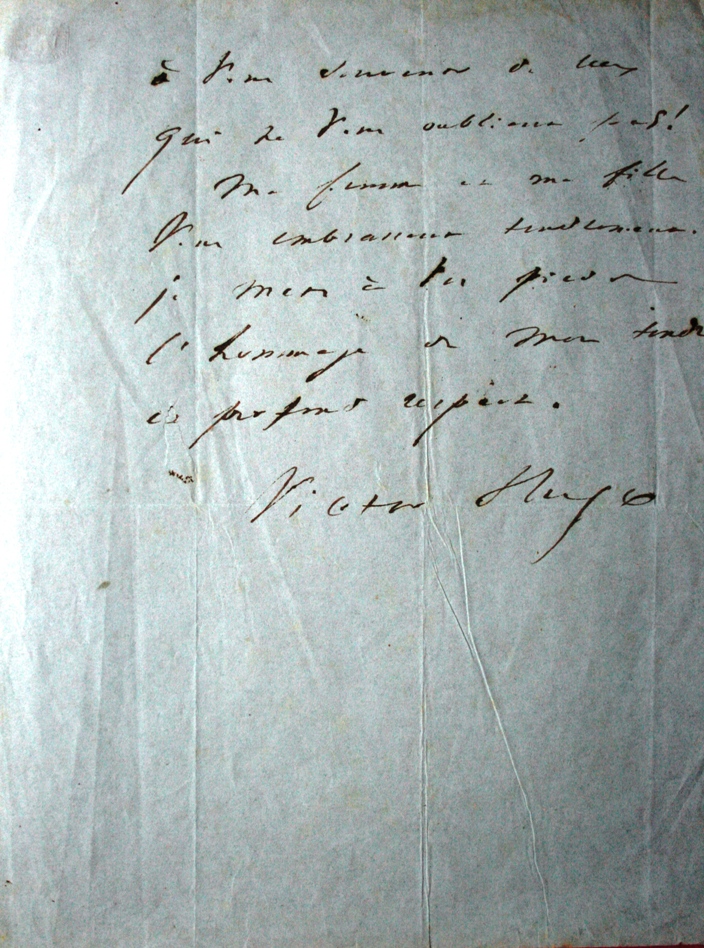 à vous souvenir de ceux
qui ne vous oublient pas!
Ma femme et ma fille
vous embrassent tendrement.
je mets à vos pieds
l'hommage de mon tendre
et profond respect.
Victor Hugo